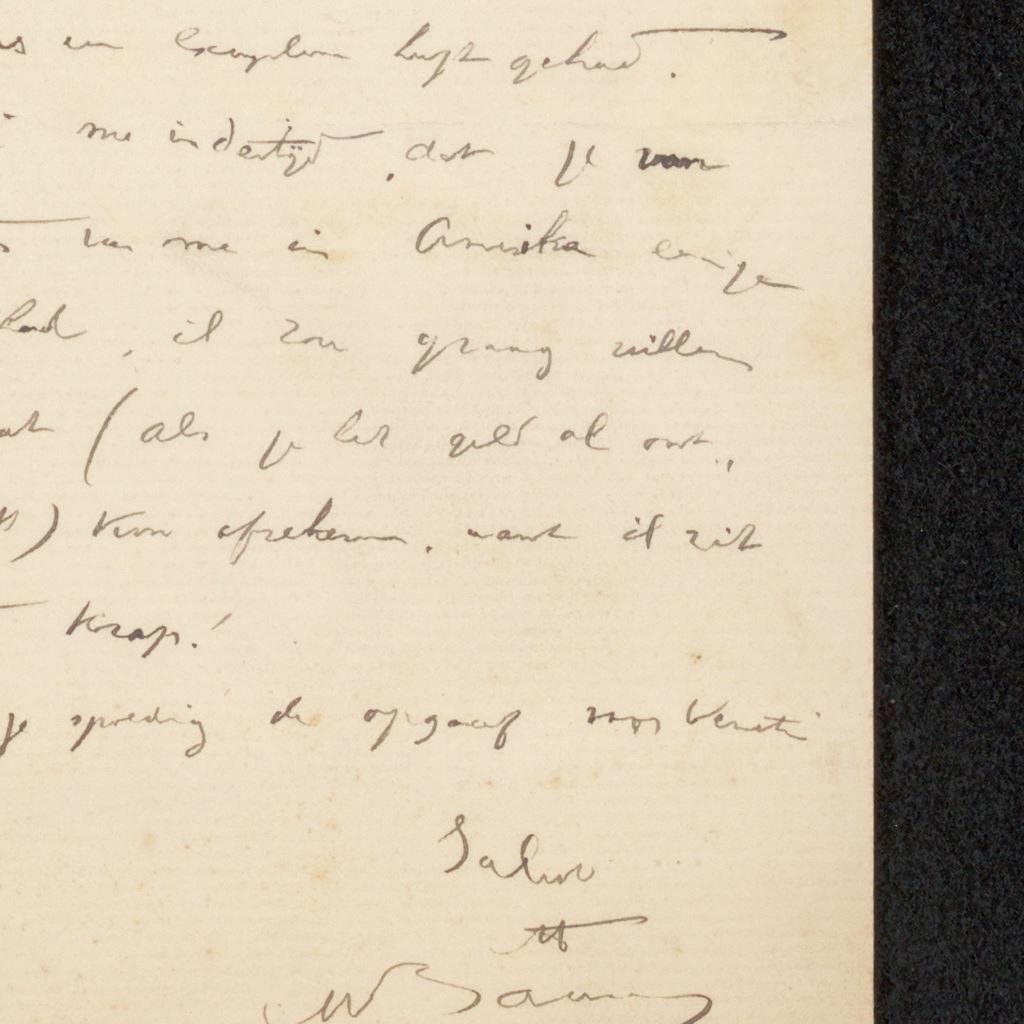 een Exemplaar hebt gehad.
me indertijd, dat je van
van me in Amerika eenige
had, ik zou graag willen
(als je het geld al ont-
) kon afrekenen, want ik zit
krap!
je spoedig de opgaaf voor Veneti
Saluut
tt
W Bauer